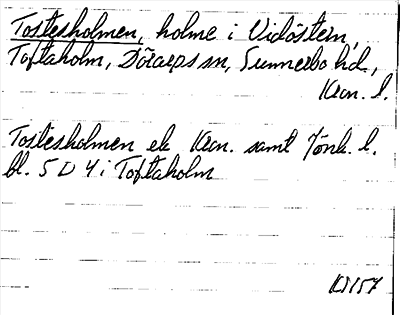 Tostesholmen, holme i Vidöstern,
Toftaholm, Dörarps sn, Sunnerbo hd,
Kron. l.
Tostesholmen ek Kron. samt Jönk. l.
bl. 5 D 4 i Toftaholm